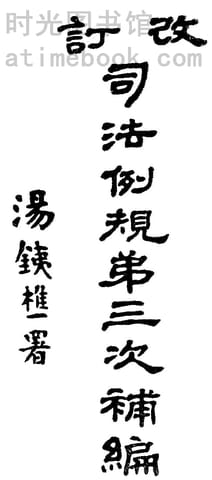 时光图书馆
atimebook.com
改訂
司法例規第三次補編
湯鉄樵署